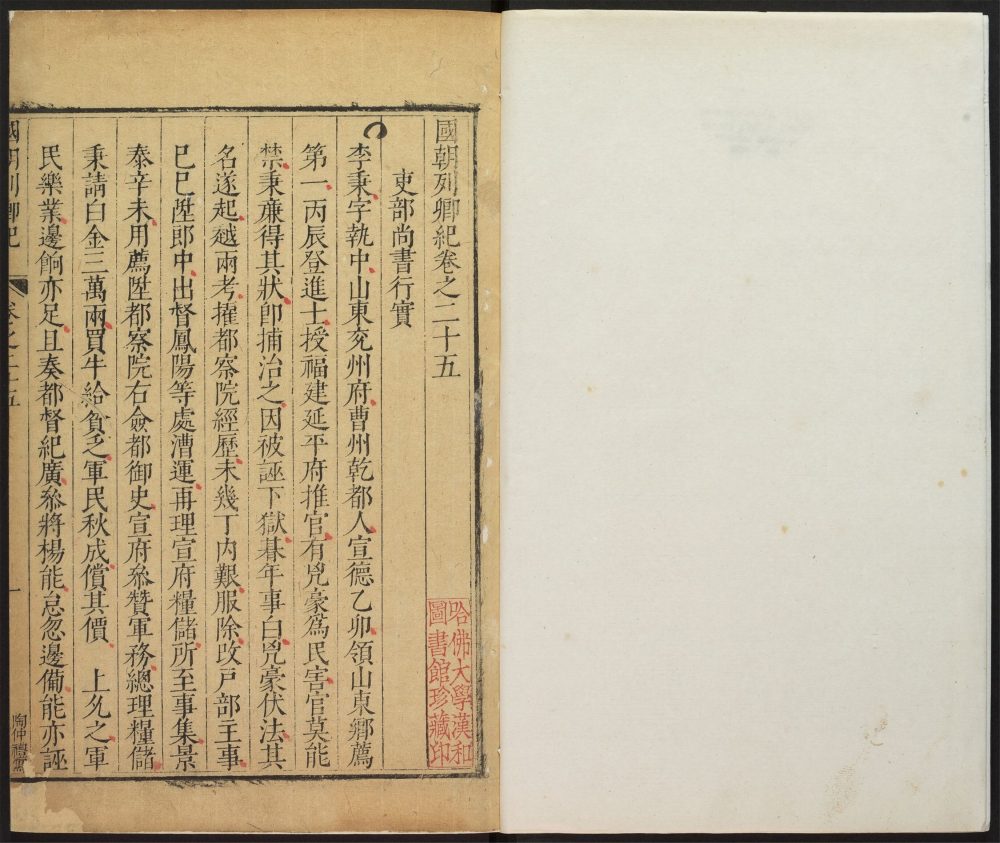 國朝列卿紀卷之二十五
吏部尚書行實
李秉字執中山東兖州府曹州乾都人宣德乙卯領山東鄉薦
第一丙辰登進士授福建延平府推官有兇豪爲民害官莫能
禁秉廉得其狀卽捕治之因被誣下獄朞年事白兇豪伏法其
名遂起越兩考擢都察院經歷未幾丁內艱服除改戸部主事
已巳陞郎中出督鳳陽等處漕運再理宣府糧儲所至事集景
泰辛未用薦陞都察院右僉都御史宣府叅贊軍務總理糧儲
秉請白金三萬兩買牛給貧乏軍民秋成償其價 上允之軍
民樂業邊餉亦足且奏都督紀廣叅將楊能怠忽邊備能亦誣
國朝列卿紀 卷之二十五 一
哈佛大學漢和
圖書館珍藏印